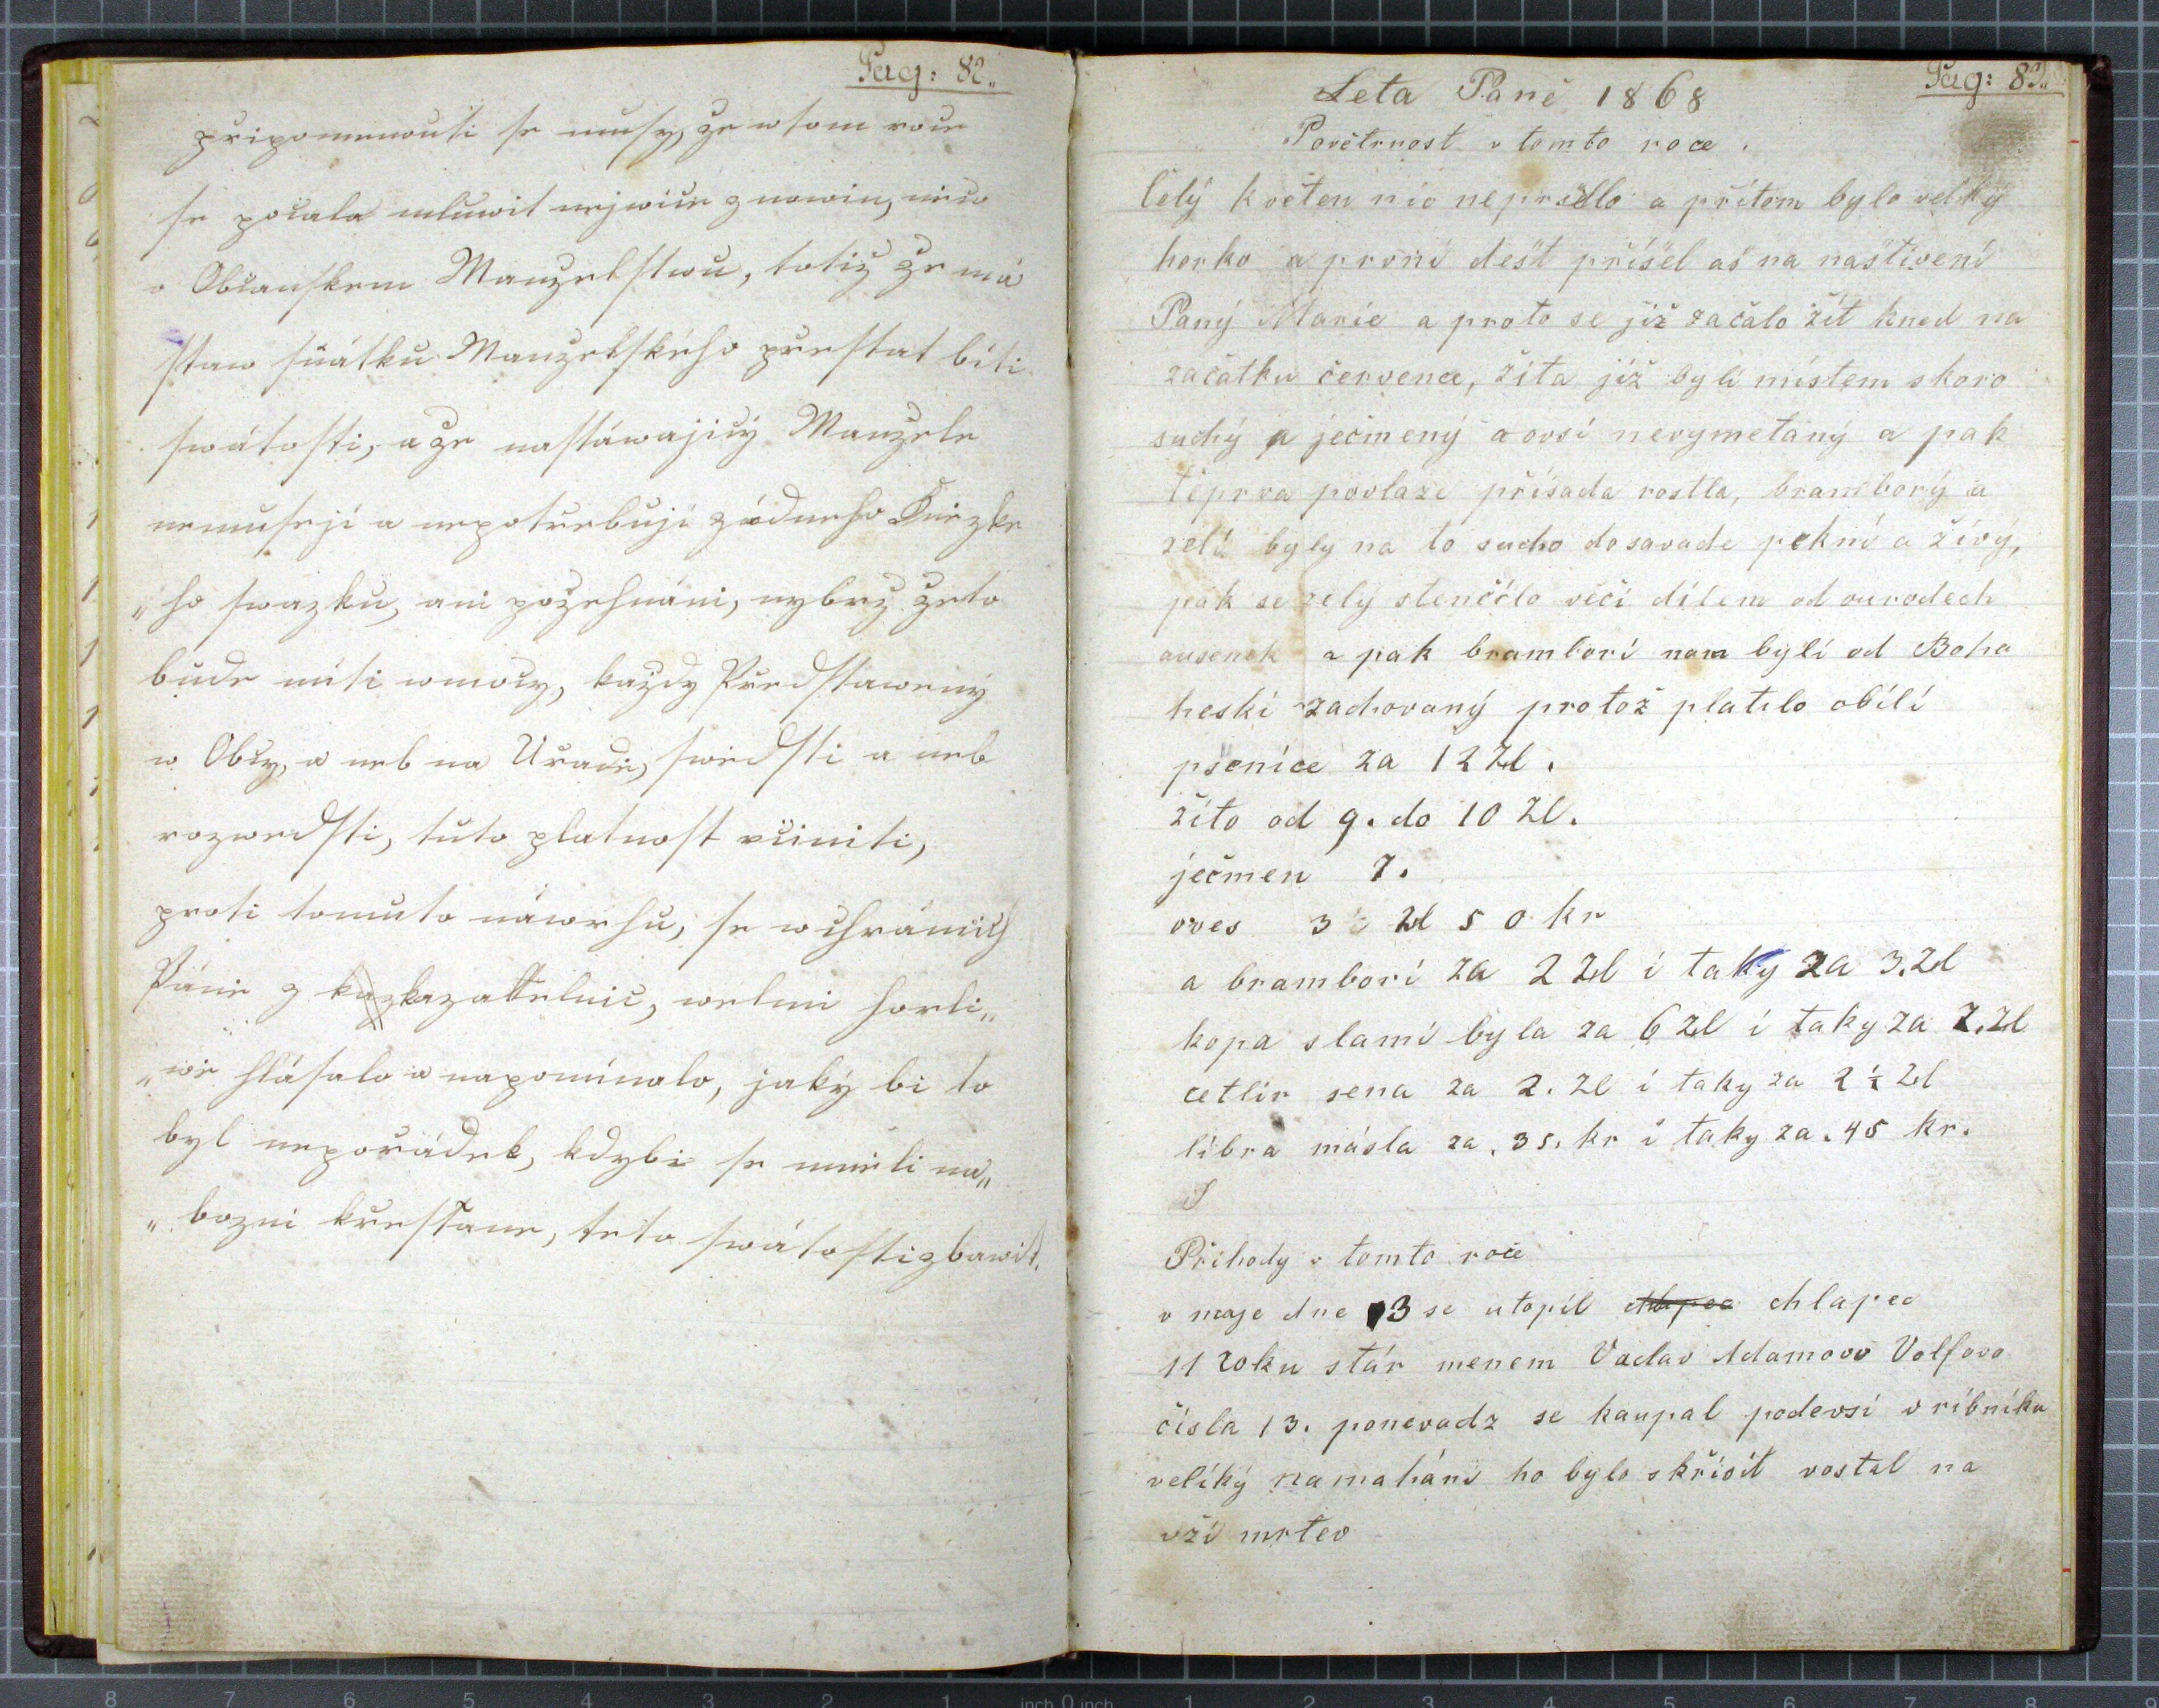 Pag: 82.
připomenouti se musy, že w tom roce
se počala mluwit nejwíce z nowin, něco
o Obcanskem Manzelstwu, totiž že má
staw sňátku Manzelského přestat bíti
swátosti, a že nastáwajicý Manzele
nemusejí a nepotřebuji zádneho Knězke
„ho swazku, ani požehnáni, nybrž žeto
bude míti w mocy, každy Předstawený
w Obcy, a neb na Uřadě, swedsti a neb
rozwedsti, tuto platnost včiniti,
proti tomuto náwrhu, se w chrámích
Páně z kazkazattelnic, welmi horli„
„wě hlásalo a napomínalo, jaký bi to
byl nepořádek, kdybi se měli ná„
„bozni křesťane, teto swátosti zbawit.
Pag: 83.
Leta Paně 1868
Povětrnost v tomto roce.
Celý květen nic neprselo a přitom bylo velký
horko a první dešt příšel aš na naštivení
Paný Marie a proto se již začalo žít hned na
začátku července, žita již byli místem skoro
suchý a ječmený a ovsi nevymetaný a pak
teprva povlaze přísada rostla, bramborý a
zelí byly na to sucho dosavade pekní a živý,
pak se zelý stenčilo věči dílem od ourodech
ausenek a pak bramborí nam byli od Boha
heskí zachovaný protož platilo obílí
psenice za 12 Zl.
žito od 9. do 10 Zl.
ječmen 7.
oves 3 Zl 50 kr
a bramborí za 2 Zl i taky za 3. Zl
kopa slamí byla za 6 Zl i taky za 7. Zl
cetlír sena za 2. Zl i taky za 2 ½ Zl
libra másla za .35. kr i taky za .45 kr.
Přihody v tomto roce
v maje dne 13 se utopil chlapec chlapec
11 roku stár menem Vaclav Adamovo Volfovo
čísla 13. ponevadz se kaupal podevsí v ribníku
velíký namaháni ho bylo skřísit vostal na
vží mrtev